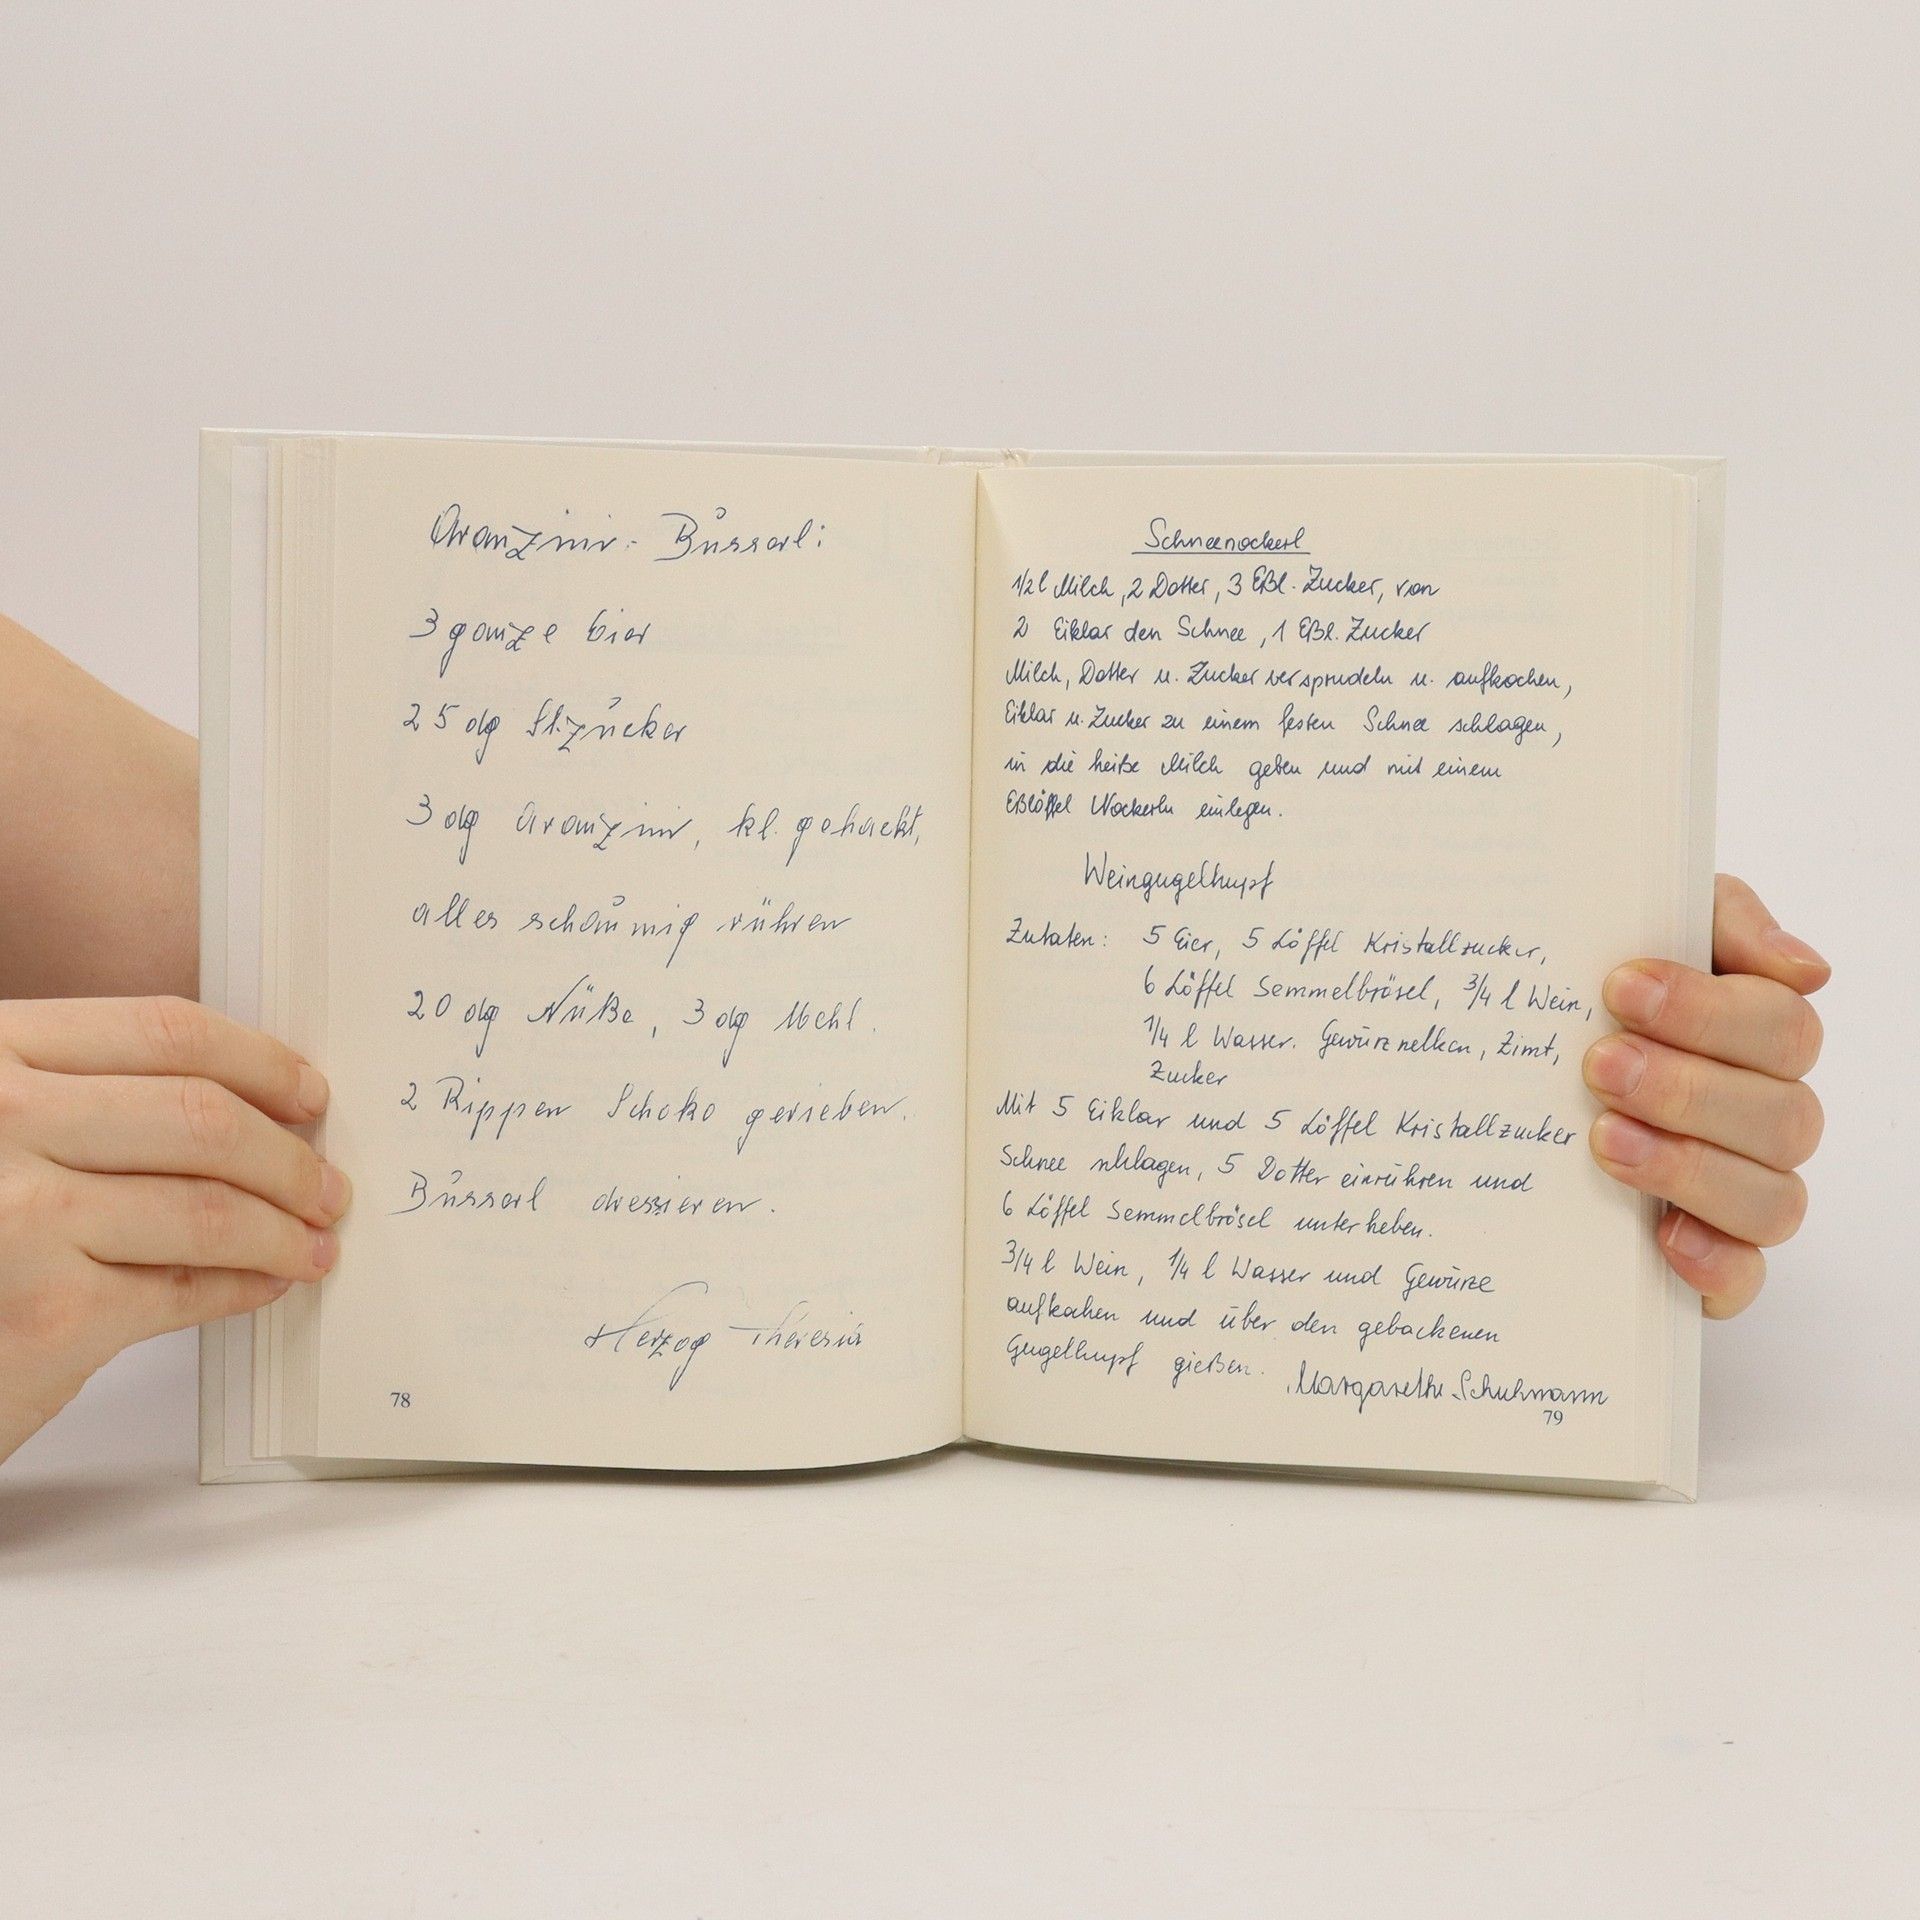 Aranzini-Busserl:
3 ganze Eier
25 dg St.zucker
3 dg Aranzini, kl. gehackt,
alles schaumig rühren
20 dg Nüße, 3 dg Mehl.
2 Rippen Schoko gerieben.
Busserl dressieren.
Herzog Theresia
78
Schneenockerl
1/2 l Milch, 2 Dotter, 3 Eßl. Zucker, von
2 Eiklar den Schnee, 1 Eßl. Zucker
Milch, Dotter u. Zucker versprudeln u. aufkochen,
Eiklar u. Zucker zu einem festen Schnee schlagen,
in die heiße Milch geben und mit einem
Eßlöffel Nockerln einlegen.
Weingugelhupf
Zutaten: 5 Eier, 5 Löffel Kristallzucker,
6 Löffel Semmelbrösel, 3/4 l Wein,
1/4 l Wasser. Gewürznelken, Zimt,
Zucker
Mit 5 Eiklar und 5 Löffel Kristallzucker
Schnee schlagen, 5 Dotter einrühren und
6 Löffel Semmelbrösel unterheben.
3/4 l Wein, 1/4 l Wasser und Gewürze
aufkochen und über den gebackenen
Gugelhupf gießen. Margarethe Schuhmann
79